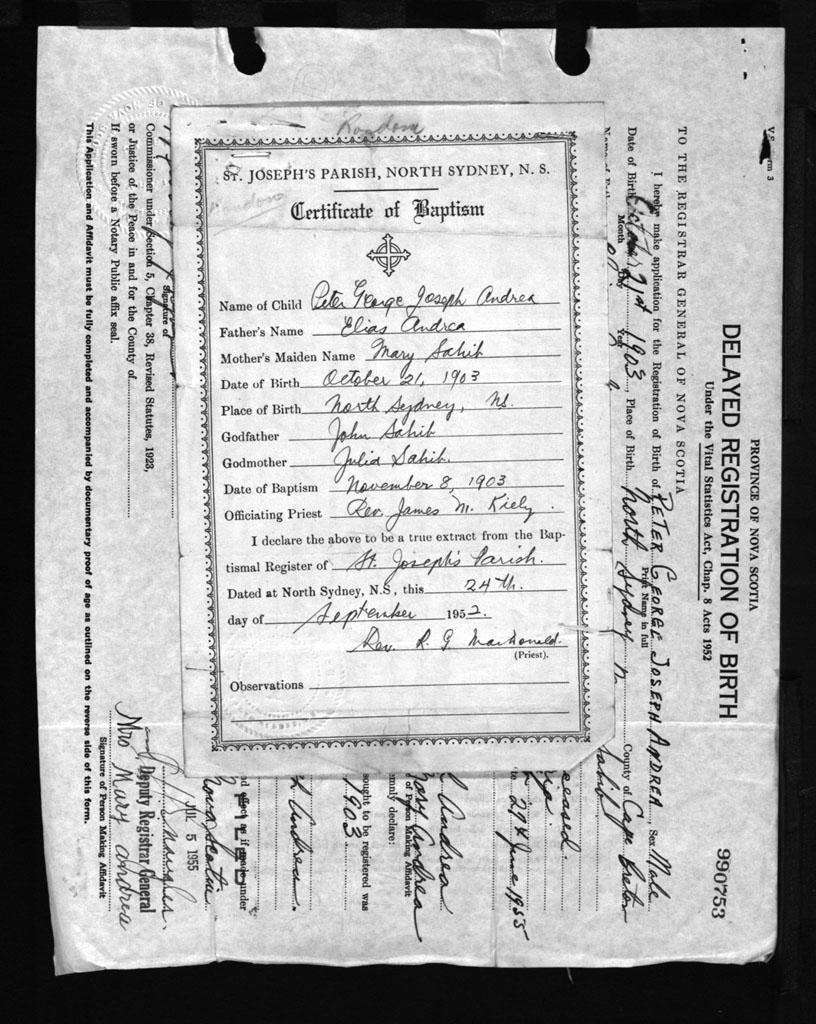 Random
ST. JOSEPH'S PARISH, NORTH SYDNEY, N. S.
Certificate of Baptism
Name of Child Peter George Joseph Andrea
Father's Name Elias Andrea
Mother's Maiden Name Mary Sahib
Date of Birth October 21, 1903
Place of Birth North Sydney, NS.
Godfather John Sahib
Godmother Julia Sahib.
Date of Baptism November 8, 1903
Officiating Priest Rev. James M. Kiely.
I declare the above to be a true extract from the Bap-
tismal Register of St. Joseph's Parish.
Dated at North Sydney, N.S., this 24th.
day of September 1952.
Rev. R. G. MacDonald.
(Priest).
Observations
PROVINCE OF NOVA SCOTIA
DELAYED REGISTRATION OF BIRTH 990753
Under the Vital Statistics Act, Chap. 8 Acts 1952
TO THE REGISTRAR GENERAL OF NOVA SCOTIA
I hereby make application for the Registration of Birth of PETER GEORGE JOSEPH ANDREA, Sex Male
Print Name in full
Date of Birth October 21st 1903, Place of Birth North Sydney County of Cape Breton
Month Day Year
Sahib
ceased.
29th June 1955
Andrea
Mary Andrea
of Person Making Affidavit
mnly declare:
ought to be registered was
1903
Andrea.
nd effect as if made under
FILED
Nova Scotia
JUL 5 1955
Deputy Registrar General
Mrs Mary Andrea
Signature of Person Making Affidavit
Signature of
Commissioner under Section 5, Chapter 38, Revised Statutes, 1923,
or Justice of the Peace in and for the County of
If sworn before a Notary Public affix seal.
This Application and Affidavit must be fully completed and accompanied by documentary proof of age as outlined on the reverse side of this form.